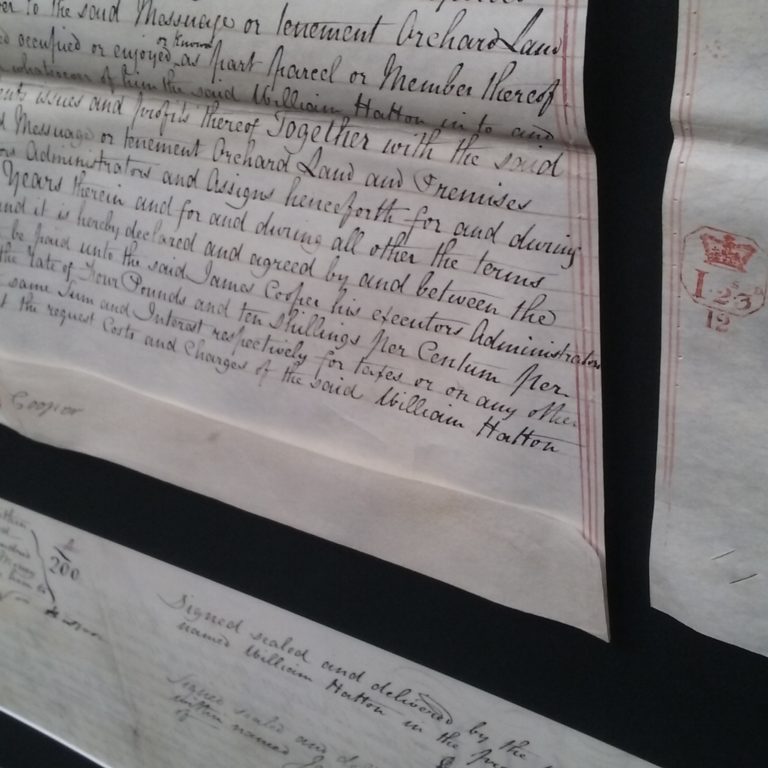 to the said Messuage or tenement Orchard Land
occupied or enjoyed or known as part parcel or Member thereof
whatsoever of him the said William Hatton in to and
issues and profits thereof Together with the said
Messuage or tenement Orchard Land and Premises
Administrators and Assigns henceforth for and during
Years therein and for and during all other the terms
and it is hereby declared and agreed by and between the
be paid unto the said James Cooper his executors Administrators
the rate of Four Pounds and ten Shillings per Centum per
same Sum and Interest respectively for taxes or on any other
the request Costs and Charges of the said William Hatton
Cooper
I.23
12
200
Signed sealed and delivered by the
named William Hatton in the
Signed sealed and
within named
of